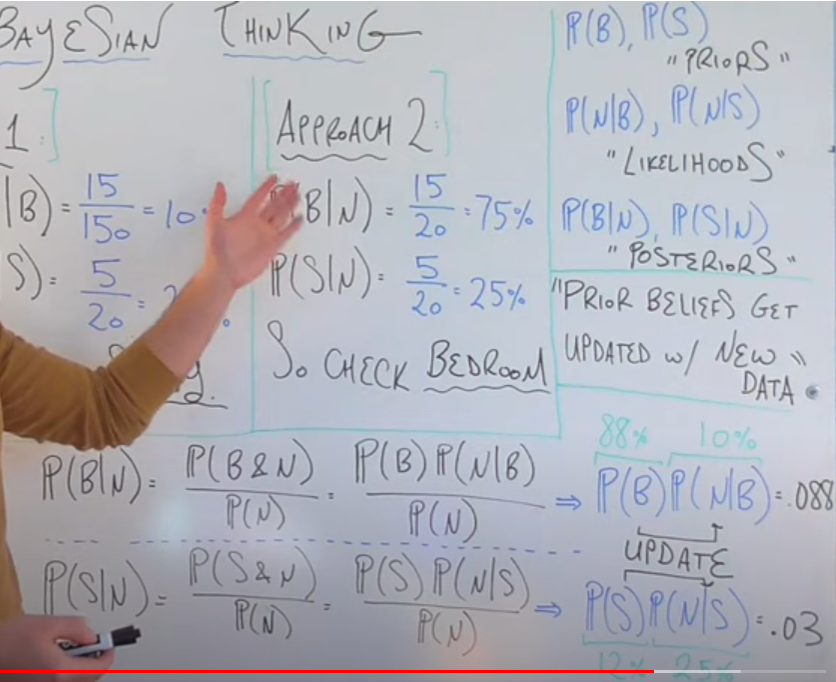 BAYESIAN THINKING
1.
|B) = 15/150 = 10
S) = 5/20 = 2
APPROACH 2.
(B|N) = 15/20 = 75%
P(S|N) = 5/20 = 25%
SO CHECK BEDROOM
P(B), P(S)
"PRIORS"
P(N|B), P(N|S)
"LIKELIHOODS"
P(B|N), P(S|N)
"POSTERIORS"
"PRIOR BELIEFS GET
UPDATED w/ NEW
DATA"
P(B|N) = P(B&N)/P(N) = P(B)P(N|B)/P(N) ⇒
88% 10%
P(B)P(N|B) = .088
UPDATE
P(S|N) = P(S&N)/P(N) = P(S)P(N|S)/P(N) ⇒
P(S)P(N|S) = .03
12% 25%